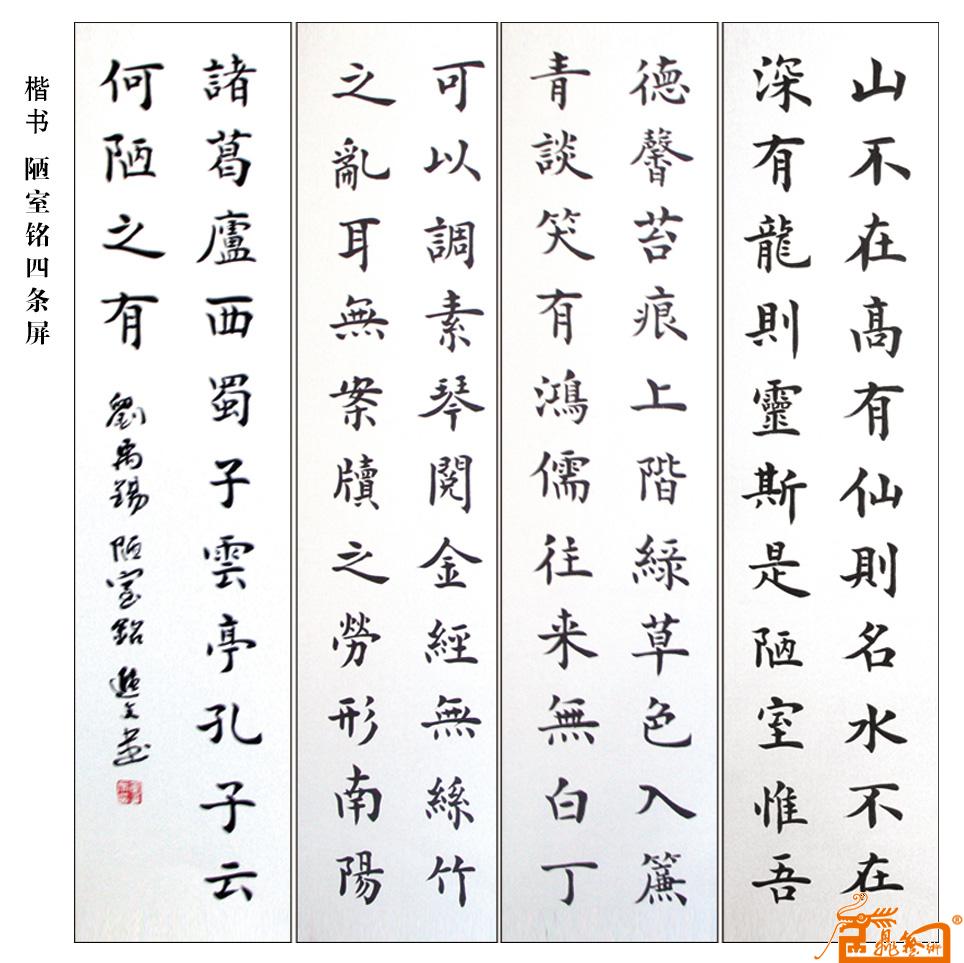 山不在髙有仙則名水不在
深有龍則靈斯是陋室惟吾
德馨苔痕上階綠草色入簾
青談笑有鴻儒往来無白丁
可以調素琴閱金經無絲竹
之亂耳無案牘之勞形南陽
諸葛廬西蜀子雲亭孔子云
何陋之有
劉禹錫陋室銘
楷书 陋室铭四条屏